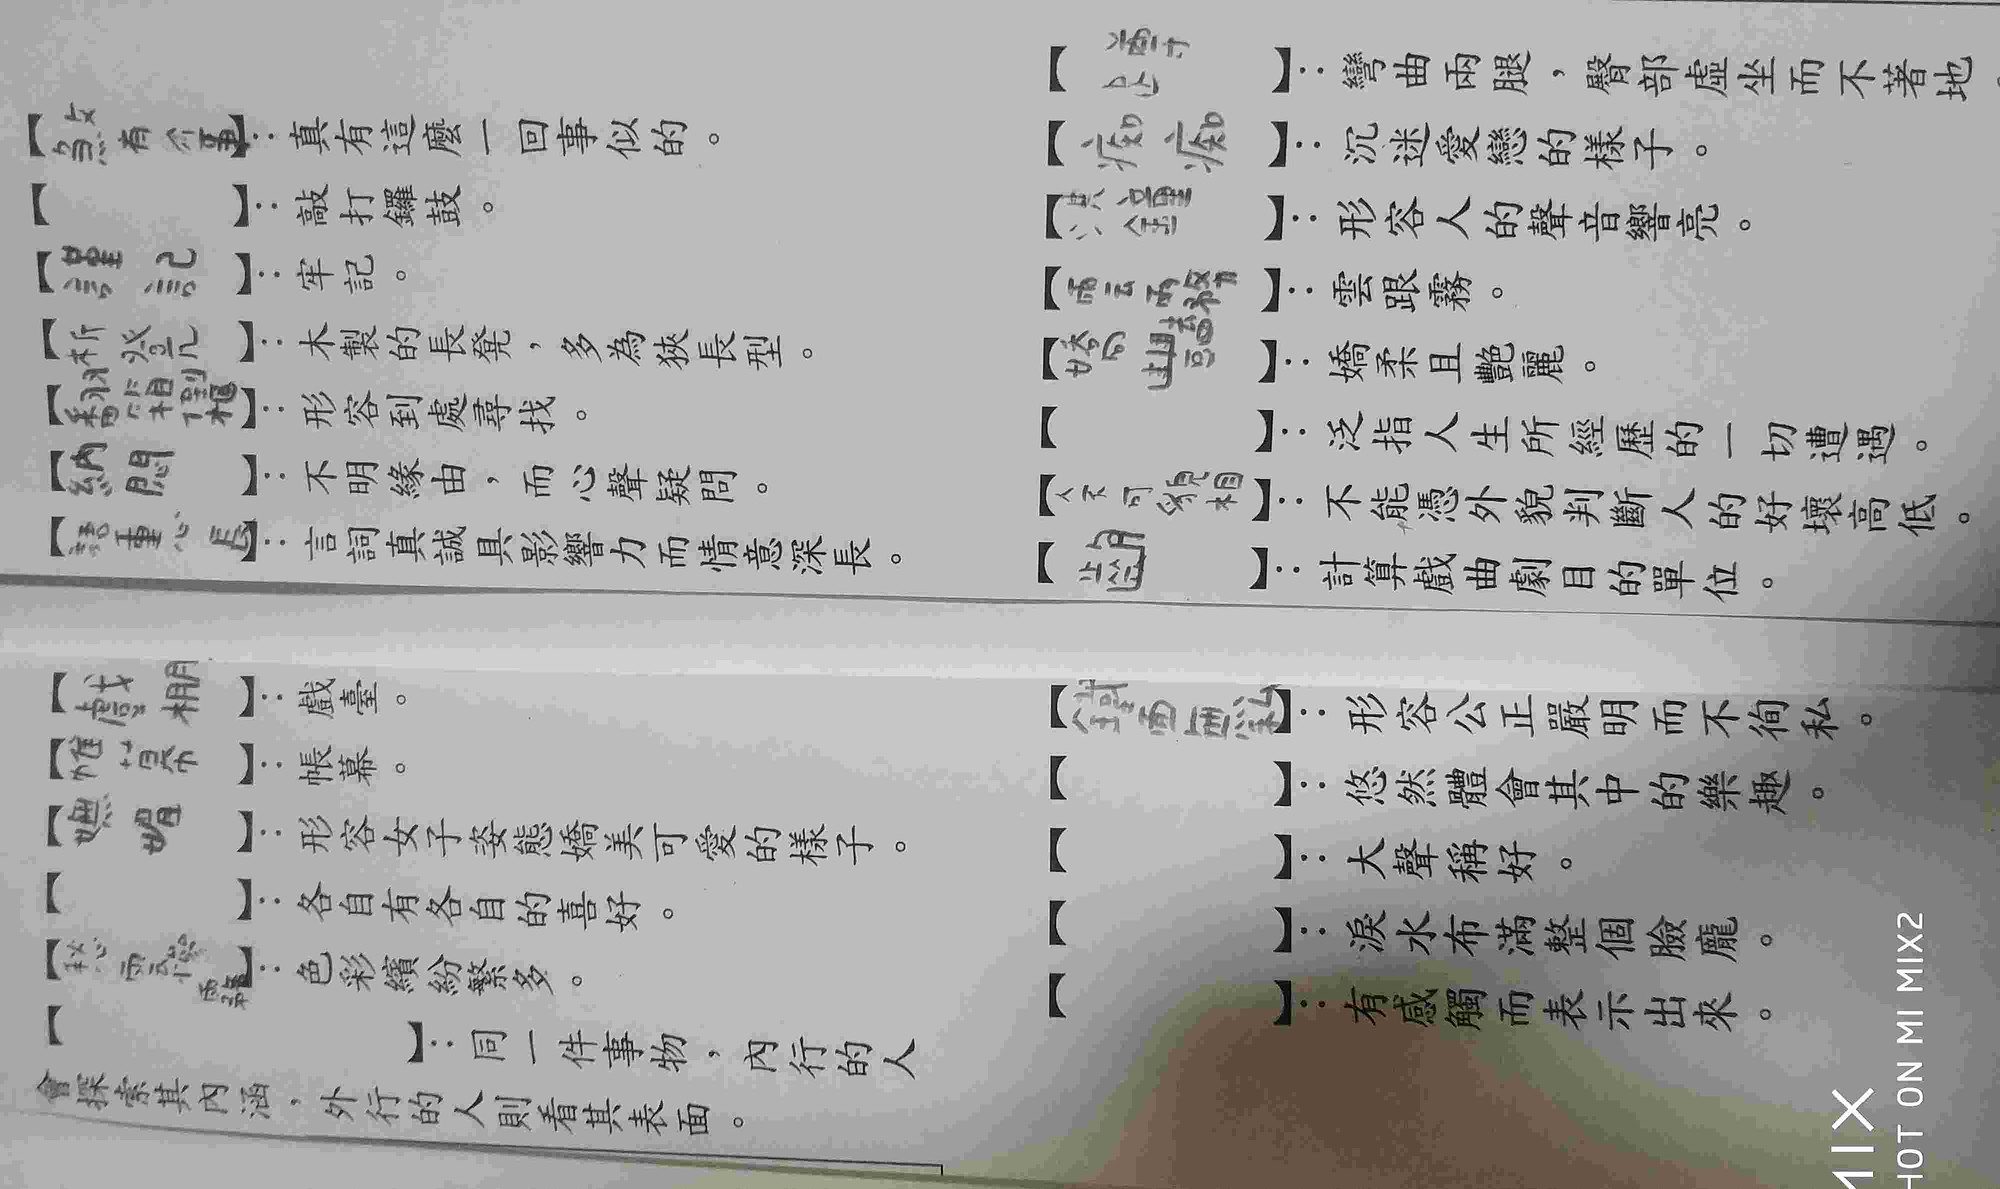 【煞有介事】：真有這麼一回事似的。
【】：敲打鑼鼓。
【謹記】：牢記。
【板凳】：木製的長凳，多為狹長型。
【翻箱倒櫃】：形容到處尋找。
【納悶】：不明緣由，而心聲疑問。
【語重心長】：言詞真誠具影響力而情意深長。
【戲棚】：戲臺。
【帷幕】：帳幕。
【嫵媚】：形容女子姿態嬌美可愛的樣子。
【】：各自有各自的喜好。
【】：色彩繽紛繁多。
【】：同一件事物，內行的人
會探索其內涵，外行的人則看其表面。
【蹲】：彎曲兩腿，臀部虛坐而不著地。
【痴痴】：沉迷愛戀的樣子。
【洪鐘】：形容人的聲音響亮。
【雲霧】：雲跟霧。
【嬌豔】：嬌柔且艷麗。
【】：泛指人生所經歷的一切遭遇。
【人不可貌相】：不能憑外貌判斷人的好壞高低。
【齣】：計算戲曲劇目的單位。
【鐵面無私】：形容公正嚴明而不徇私。
【】：悠然體會其中的樂趣。
【】：大聲稱好。
【】：淚水布滿整個臉龐。
【】：有感觸而表示出來。
MIX
SHOT ON MI MIX2